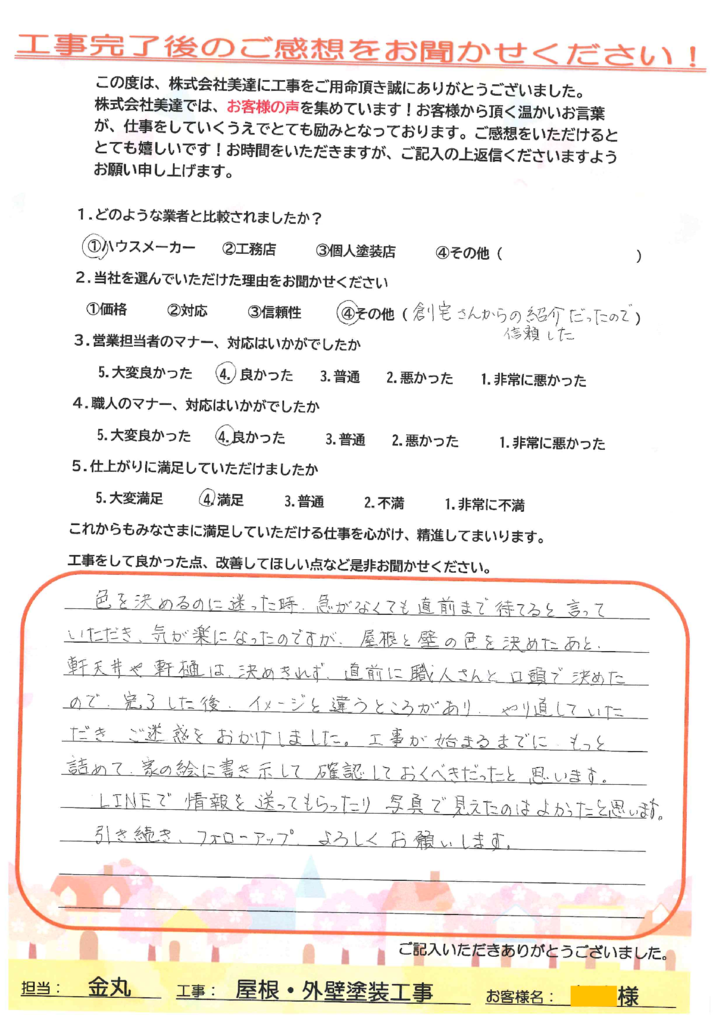 工事完了後のご感想をお聞かせください！
この度は、株式会社美達に工事をご用命頂き誠にありがとうございました。
株式会社美達では、お客様の声を集めています！お客様から頂く温かいお言葉
が、仕事をしていくうえでとても励みとなっております。ご感想をいただけると
とても嬉しいです！お時間をいただきますが、ご記入の上返信くださいますよう
お願い申し上げます。
1.どのような業者と比較されましたか？
①ハウスメーカー ②工務店 ③個人塗装店 ④その他（ ）
2.当社を選んでいただけた理由をお聞かせください
①価格 ②対応 ③信頼性 ④その他（創宅さんからの紹介だったので）
信頼した
3.営業担当者のマナー、対応はいかがでしたか
5.大変良かった 4.良かった 3.普通 2.悪かった 1.非常に悪かった
4.職人のマナー、対応はいかがでしたか
5.大変良かった 4.良かった 3.普通 2.悪かった 1.非常に悪かった
5.仕上がりに満足していただけましたか
5.大変満足 4.満足 3.普通 2.不満 1.非常に不満
これからもみなさまに満足していただける仕事を心がけ、精進してまいります。
工事をして良かった点、改善してほしい点など是非お聞かせください。
色を決めるのに迷った時、急がなくても直前まで待てると言って
いただき、気が楽になったのですが、屋根と壁の色を決めたあと、
軒天井や軒樋は、決めきれず、直前に職人さんと口頭で決めた
ので、完了した後、イメージと違うところがあり、やり直していた
だき、ご迷惑をおかけしました。工事が始まるまでに、もっと
詰めて、家の絵に書き示して確認しておくべきだったと思います。
LINEで情報を送ってもらったり写真で見えたのはよかったと思います。
引き続き、フォローアップ、よろしくお願いします。
ご記入いただきありがとうございました。
担当： 金丸 工事： 屋根・外壁塗装工事 お客様名： 様